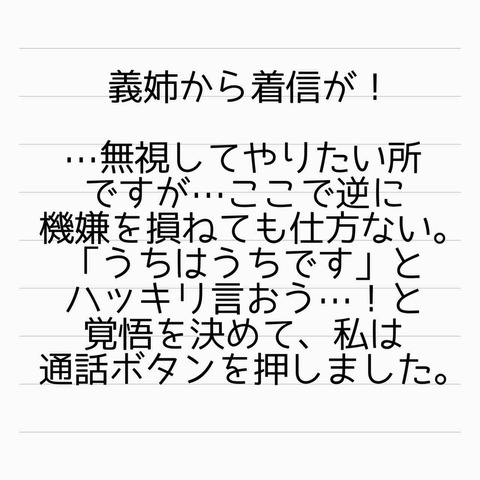 義姉から着信が！
…無視してやりたい所
ですが…ここで逆に
機嫌を損ねても仕方ない。
「うちはうちです」と
ハッキリ言おう…！と
覚悟を決めて、私は
通話ボタンを押しました。